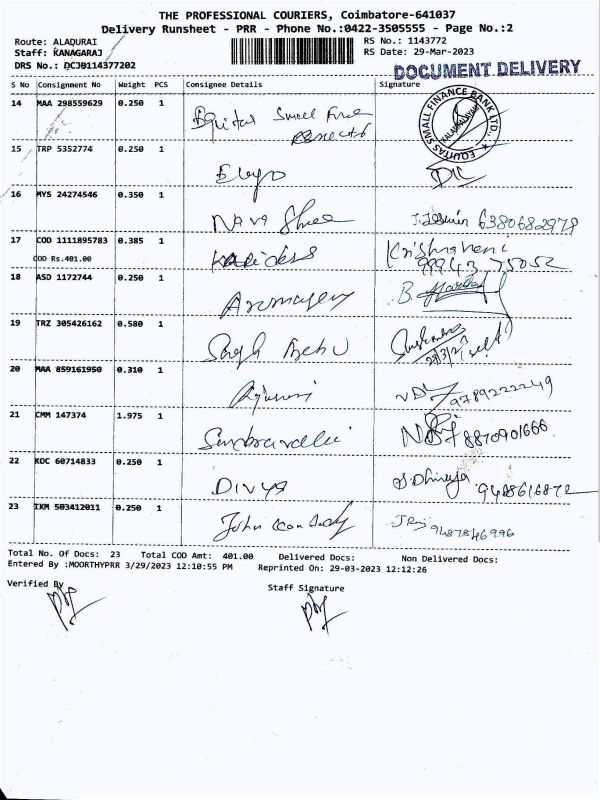 THE PROFESSIONAL COURIERS, Coimbatore-641037
Delivery Runsheet - PRR - Phone No.:0422-3505555 - Page No.:2
Route: ALADURAI RS No.: 1143772
Staff: KANAGARAJ RS Date: 29-Mar-2023
DRS No.: DCJB114377202
DOCUMENT DELIVERY
S No Consignment No Weight PCS Consignee Details Signature
14 MAA 298559629 0.250 1 Small
EQUITAS SMALL FINANCE BANK LTD.,
15 TRP 5352774 0.250 1
16 MYS 24274546 0.350 1 Nava Shree 6380682979
17 COD 1111895783 0.385 1 Krishnaveni
COD Rs.401.00 99943 75052
18 ASD 1172744 0.250 1 B.
19 TRZ 305426162 0.580 1
29/3/23 self
20 MAA 859161950 0.310 1 9789222249
21 CMM 147374 1.975 1 8870901666
22 KDC 60714833 0.250 1 DIVYA
23 IXM 503412011 0.250 1 John 9487846996
Total No. Of Docs: 23 Total COD Amt: 401.00 Delivered Docs: Non Delivered Docs:
Entered By :MOORTHYPRR 3/29/2023 12:10:55 PM Reprinted On: 29-03-2023 12:12:26
Verified By Staff Signature